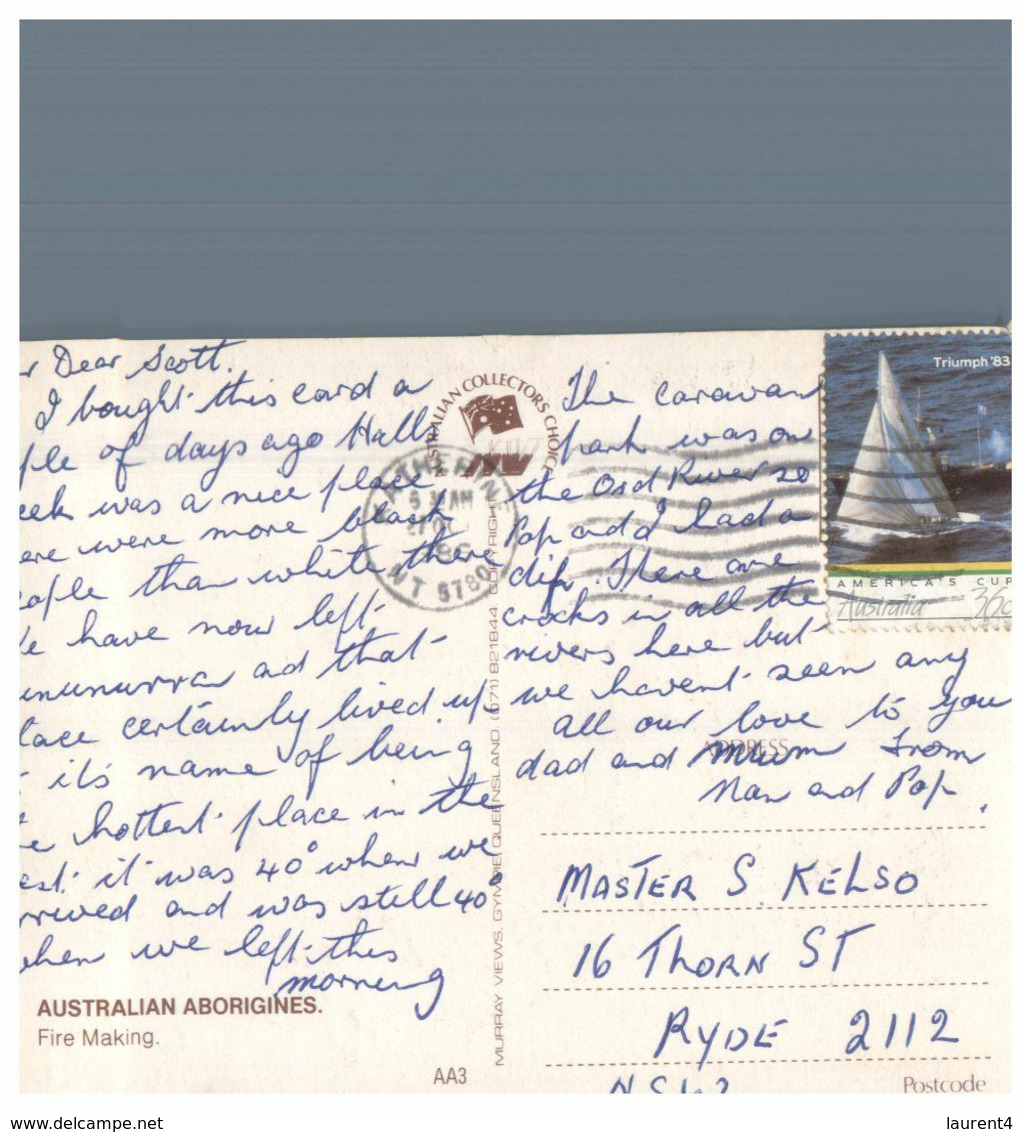 r Dear Scott.
I bought this card a
ple of days ago Hall
eek was a nice place
ere were more black
ople than white there
e have now left
ununurra ad that
lace certainly lived up
it's name of being
e hottest place in the
est it was 40° when we
rrived and was still 40°
when we left this
morning
AUSTRALIAN ABORIGINES.
Fire Making.
AA3
AUSTRALIAN COLLECTORS CHOICE
MURRAY VIEWS, GYMPIE QUEENSLAND. (071) 821844 COPYRIGHT
KATHERINE
9 AM
86
NT 5780
The caravan
park was on
the Ord River so
Pop and I had a
dip. There are
crocks in all the
rivers here but
we havent seen any
all our love to you
dad and mum from
Nan and Pop.
Triumph '83
AMERICA'S CUP
Australia 36c
ADDRESS
MASTER S. KELSO
16 THORN ST
RYDE 2112
NSW
Postcode
www.delcampe.net
laurent4